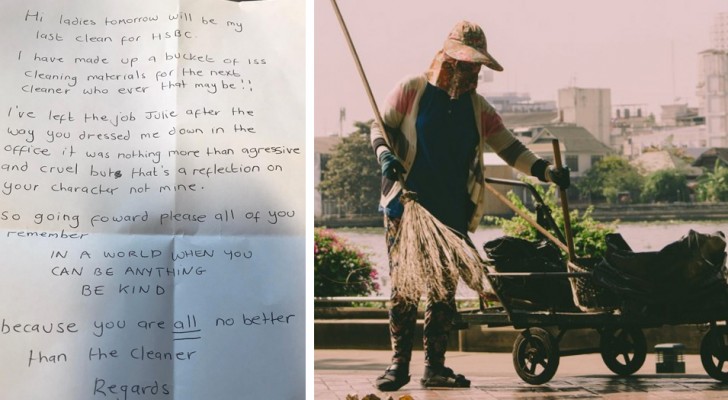 Hi ladies tomorrow will be my
last clean for HSBC.
I have made up a bucket of ISS
cleaning materials for the next
cleaner who ever that may be!!
I've left the job Julie after the
way you dressed me down in the
office it was nothing more than agressive
and cruel but that's a reflection on
your character not mine.
So going foward please all of you
remember
IN A WORLD WHEN YOU
CAN BE ANYTHING
BE KIND
because you are all no better
than the cleaner
Regards